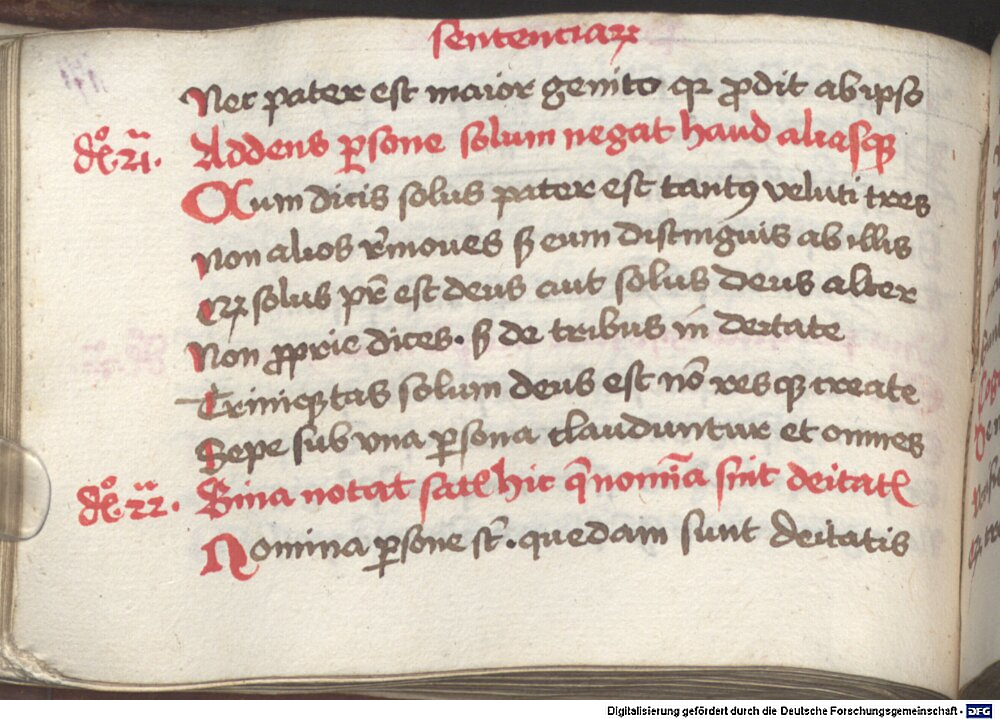 sentenciaꝝ
Nec pater est maior genito qꝛ ꝓdit ab ipso
dꝭº. 21. Addens ꝑsone solum negat haud aliasqꝫ
Cum dicis solus pater est tantꝰ veluti tres
Non alios remoues sꝫ eum distinguis ab illis
solus pr̄ est deus aut solus deus alter
Non ꝓprie dices. sꝫ de tribus in deitate
Triniqꝫ tas solum deus est nō resqꝫ create
Sepe sub vna ꝑsona clauduntur et omnes
dꝭº. 22. Bina notat hic q̄ noīa sint deitatꝭ
Nomina ꝑsone st̄. quedam sunt deitatis
Digitalisierung gefördert durch die Deutsche Forschungsgemeinschaft - DFG